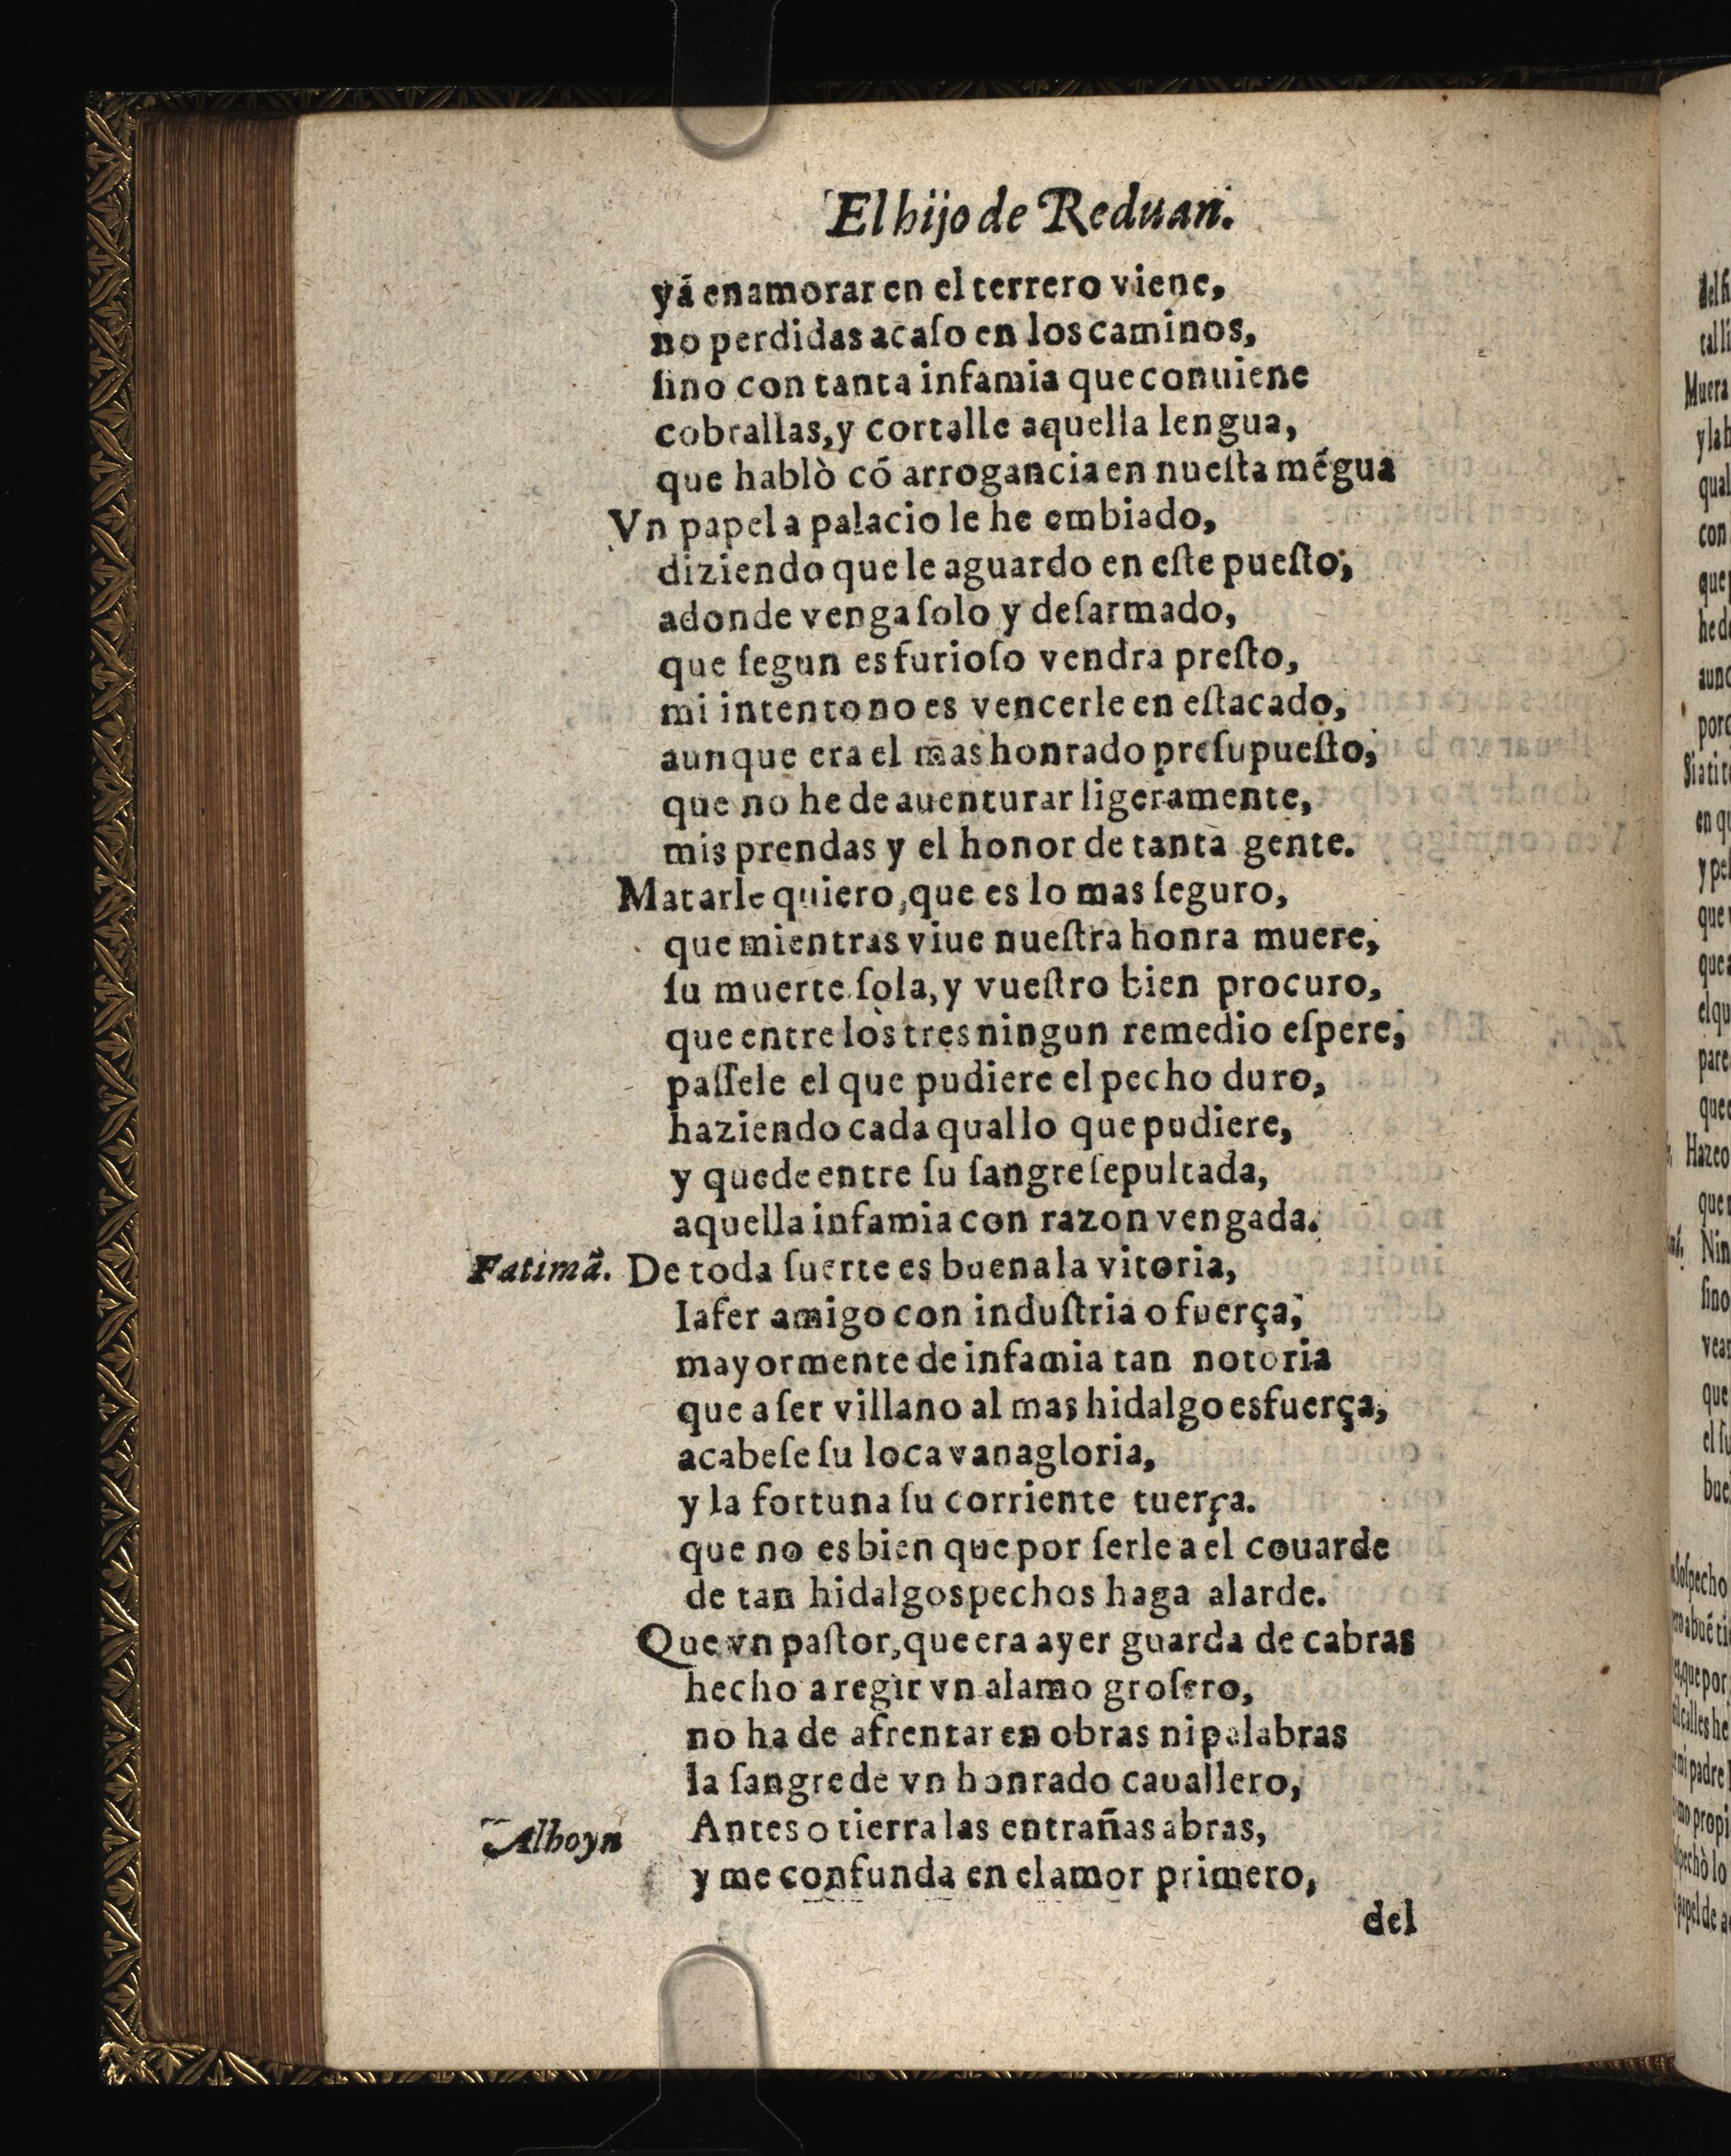 El hijo de Reduan.
yá enamorar en el terrero viene,
no perdidas acaſo en los caminos,
ſino con tanta infamia que conuiene
cobrallas, y cortalle aquella lengua,
que hablò có arrogancia en nueſta mégua
Vn papel a palacio le he embiado,
diziendo que le aguardo en eſte pueſto,
adonde venga ſolo y deſarmado,
que ſegun es furioſo vendra preſto,
mi intento no es vencerle en eſtacado,
aunque era el mas honrado preſupueſto,
que no he de auenturar ligeramente,
mis prendas y el honor de tanta gente.
Matarle quiero, que es lo mas ſeguro,
que mientras viue nueſtra honra muere,
ſu muerte ſola, y vueſtro bien procuro,
que entre los tres ningun remedio eſpere,
paſſele el que pudiere el pecho duro,
haziendo cada qual lo que pudiere,
y quede entre ſu ſangre ſepultada,
aquella infamia con razon vengada.
Fatimā. De toda ſuerte es buena la vitoria,
Iafer amigo con induſtria o fuerça,
mayormente de infamia tan notoria
que a ſer villano al mas hidalgo esfuerça,
acabeſe ſu loca vanagloria,
y la fortuna ſu corriente tuerça.
que no es bien que por ſerle a el couarde
de tan hidalgos pechos haga alarde.
Que vn paſtor, que era ayer guarda de cabras
hecho a regir vn alamo groſero,
no ha de afrentar en obras ni palabras
la ſangre de vn honrado cauallero,
Alboyn Antes o tierra las entrañas abras,
y me confunda en el amor primero,
del